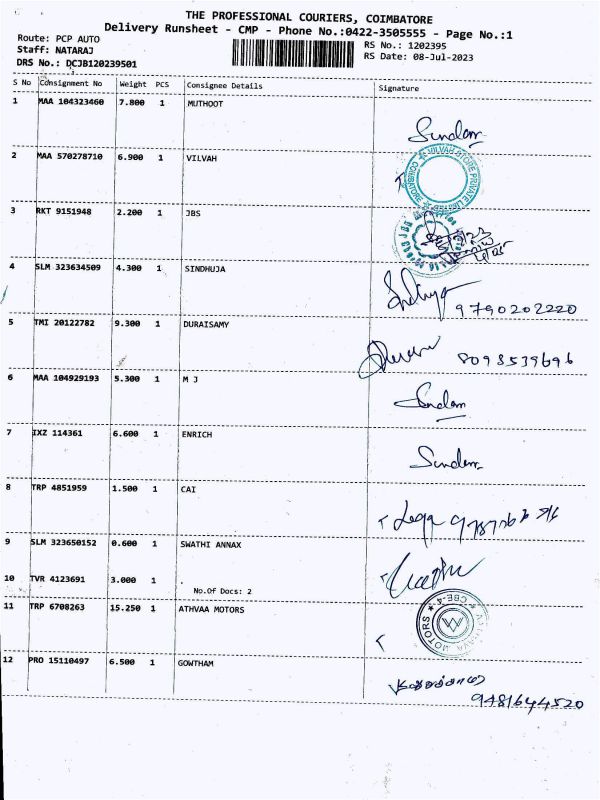 THE PROFESSIONAL COURIERS, COIMBATORE
Delivery Runsheet - CMP - Phone No.:0422-3505555 - Page No.:1
Route: PCP AUTO RS No.: 1202395
Staff: NATARAJ RS Date: 08-Jul-2023
DRS No.: DCJB120239501
S No Consignment No Weight PCS Consignee Details Signature
1 MAA 104323460 7.800 1 MUTHOOT
Sundar
2 MAA 570278710 6.900 1 VILVAH
3 RKT 9151948 2.200 1 JBS
4 SLM 323634509 4.300 1 SINDHUJA
9790202220
5 TMI 20122782 9.300 1 DURAISAMY
8098539696
6 MAA 104929193 5.300 1 M J
Sundar
7 IXZ 114361 6.600 1 ENRICH
Sundar
8 TRP 4851959 1.500 1 CAI
9 SLM 323650152 0.600 1 SWATHI ANNAX
10 TVR 4123691 3.000 1 .
No.Of Docs: 2
11 TRP 6708263 15.250 1 ATHVAA MOTORS
CBE-4
MOTORS
12 PRO 15110497 6.500 1 GOWTHAM
9481644520